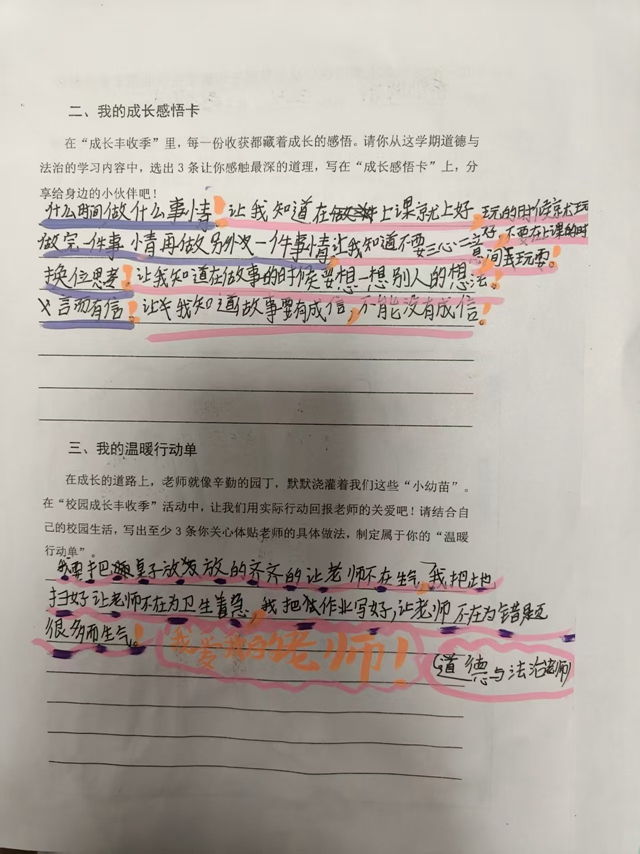 二、我的成长感悟卡
在“成长丰收季”里，每一份收获都藏着成长的感悟。请你从这学期道德与
法治的学习内容中，选出3条让你感触最深的道理，写在“成长感悟卡”上，分
享给身边的小伙伴吧！
什么时间做什么事情！让我知道在上课就上好，玩的时候就尤玩
做完一件事情再做另外一件事情让我知道不要三心二意
好，不要在上课的时
间去玩耍！
换位思考！让我知道在做事的时候要想一想别人的想法！
言而有信！让我知道做事要有成信，不能没有成信！
三、我的温暖行动单
在成长的道路上，老师就像辛勤的园丁，默默浇灌着我们这些“小幼苗”。
在“校园成长丰收季”活动中，让我们用实际行动回报老师的关爱吧！请结合自
己的校园生活，写出至少3条你关心体贴老师的具体做法，制定属于你的“温暖
行动单”。
我要把桌子放放的齐齐的让老师不在生气，我把地
扫好让老师不在为卫生着急，我把作业写好，让老师不在为错题
很多而生气。！我爱我的老师！
（道德与法治老师）